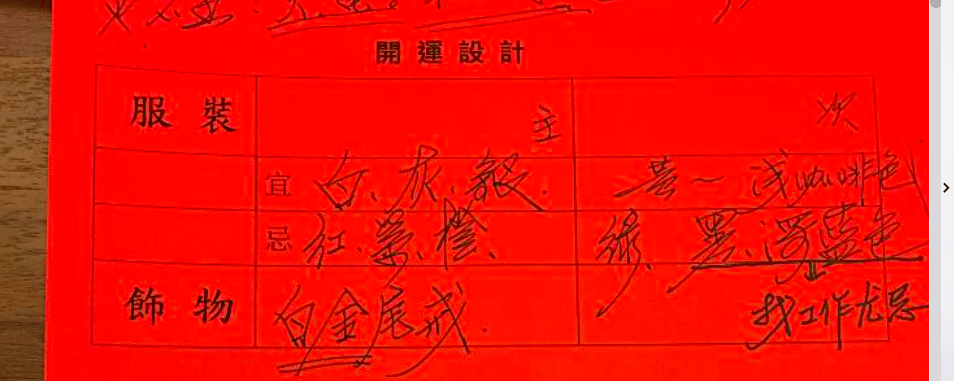 開運設計
服裝 主 次
宜 白、灰、銀. 黃~淺咖啡色
忌 紅、紫、橙、 綠、黑、深藍色
飾物 白金尾戒. 找工作尤忌